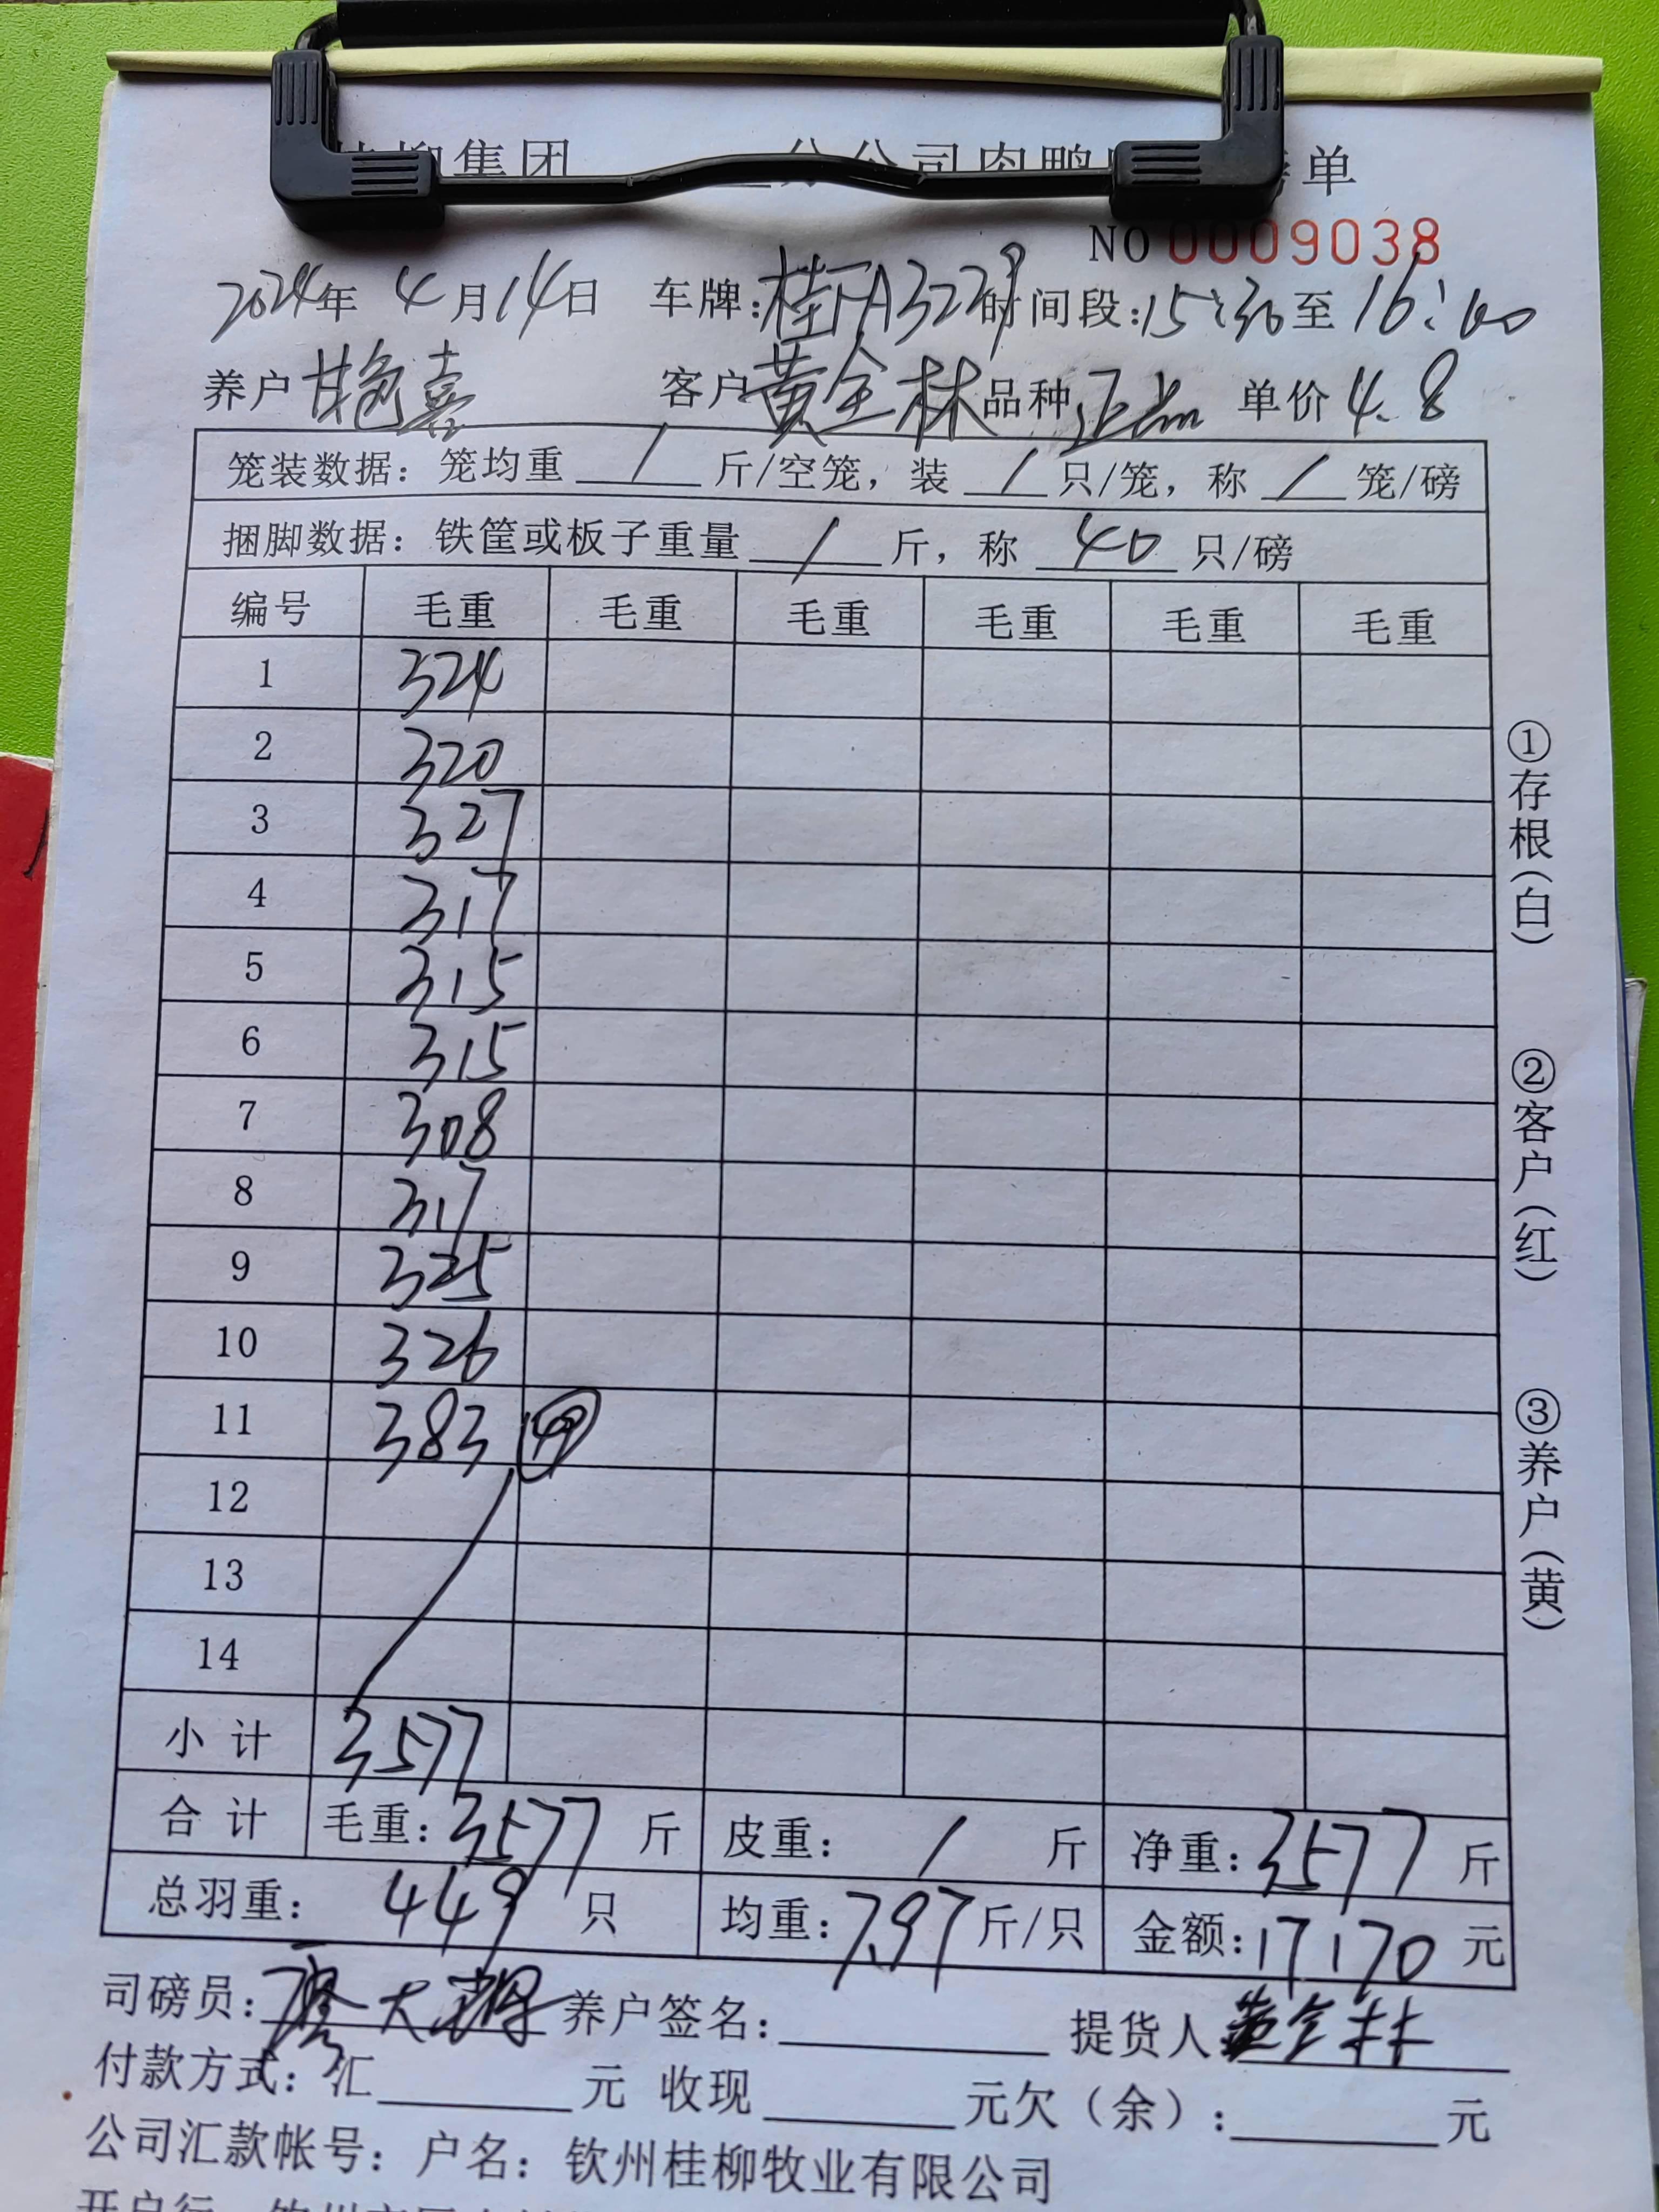 集团 分公司肉鸭 单
NO 0009038
2024年 4月14日 车牌:桂FA3229 时间段:15:30至16:00
养户 艳喜 客户 黄全林 品种 正品 单价 4.8
笼装数据: 笼均重 / 斤/空笼, 装 / 只/笼, 称 / 笼/磅
捆脚数据: 铁筐或板子重量 / 斤, 称 40 只/磅
编号 毛重 毛重 毛重 毛重 毛重 毛重
1 324
2 320
3 327
4 317
5 315
6 315
7 308
8 317
9 325
10 326
11 383 49
12
13
14
小计 3577
合计 毛重: 3577 斤 皮重: / 斤 净重: 3577 斤
总羽重: 449 只 均重: 7.97 斤/只 金额: 17170 元
司磅员: 廖大 养户签名: 提货人 黄全林
付款方式: 汇 元 收现 元欠(余): 元
公司汇款帐号: 户名: 钦州桂柳牧业有限公司
①存根(白)
②客户(红)
③养户(黄)